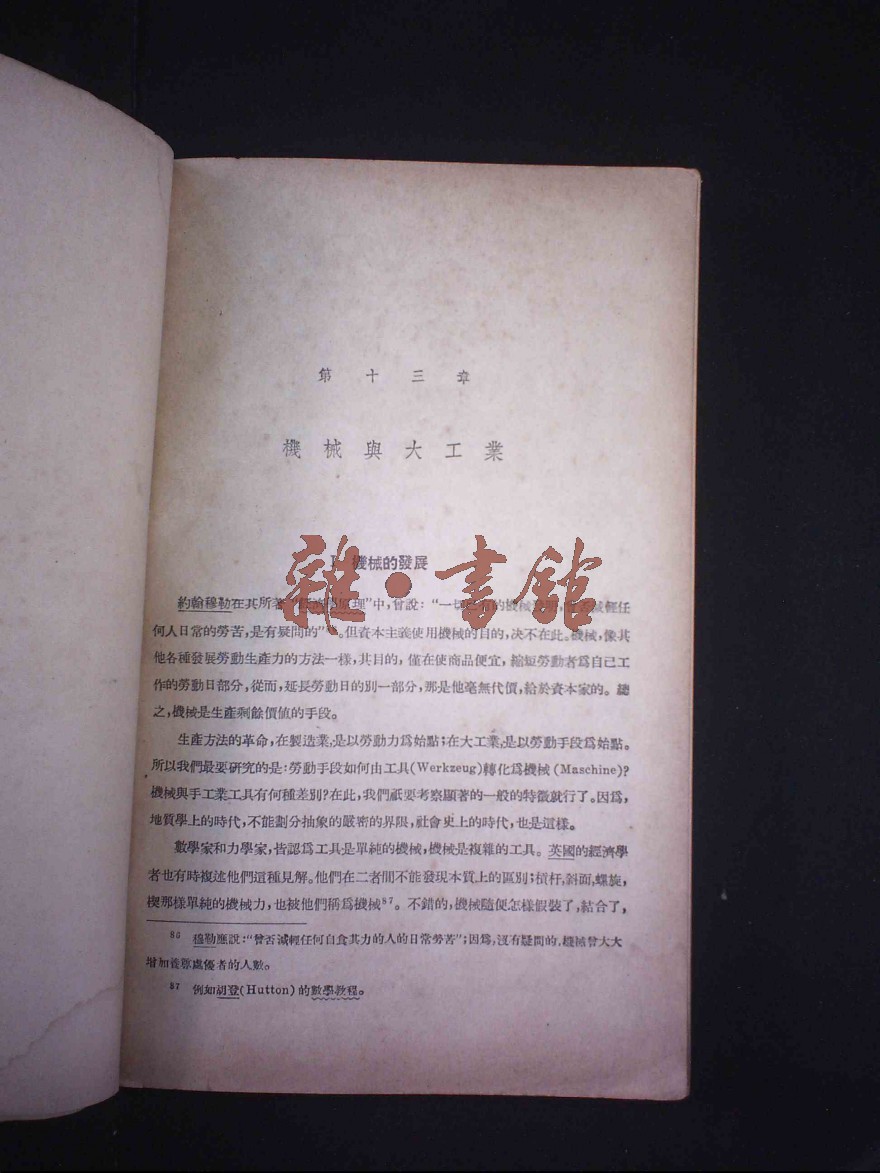 第十三章
機械與大工業
機械的發展
約翰穆勒在其所著“經濟學原理”中，曾說：“一切已有的機械發明，曾否減輕任
何人日常的勞苦，是有疑問的”。但資本主義使用機械的目的，决不在此。機械，像其
他各種發展勞動生產力的方法一樣，其目的，僅在使商品便宜，縮短勞動者爲自己工
作的勞動日部分，從而，延長勞動日的別一部分，那是他毫無代價，給於資本家的。總
之，機械是生產剩餘價值的手段。
生產方法的革命，在製造業，是以勞動力爲始點；在大工業，是以勞動手段爲始點。
所以我們最要研究的是：勞動手段如何由工具(Werkzeug)轉化爲機械(Maschine)?
機械與手工業工具有何種差別?在此，我們祇要考察顯著的一般的特徵就行了。因爲，
地質學上的時代，不能劃分抽象的嚴密的界限，社會史上的時代，也是這樣。
數學家和力學家，皆認爲工具是單純的機械，機械是複雜的工具。英國的經濟學
者也有時複述他們這種見解。他們在二者間不能發現本質上的區別；槓杆，斜面，螺旋，
楔那樣單純的機械力，也被他們稱爲機械87。不錯的，機械隨便怎樣假裝了，結合了，
86 穆勒應說：“曾否減輕任何自食其力的人的日常勞苦”；因爲，沒有疑問的，機械曾大大
增加養尊處優者的人數。
87 例如胡登(Hutton)的數學教程。
雜·書館